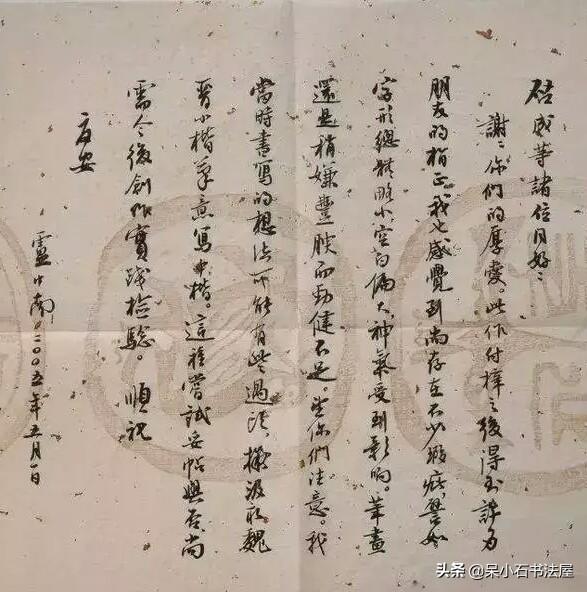 成等諸位同好：
謝謝你們的厚愛。此作付梓之後得到諸多
朋友的指正，我也感覺到尚存在不少瑕疵，譬如
字形總體略小，空白偏大，神氣受到影响。筆畫
還是稍嫌豐腴而勁健不足。望你們注意。我
當時書寫的想法可能有些過頭，擬汲取魏
晋小楷筆意寫中楷。這種嘗試妥帖與否尚
需今後創作實踐檢驗。順祝
安
盧中南。二〇〇五年五月一日
头条 @呆小石书法屋